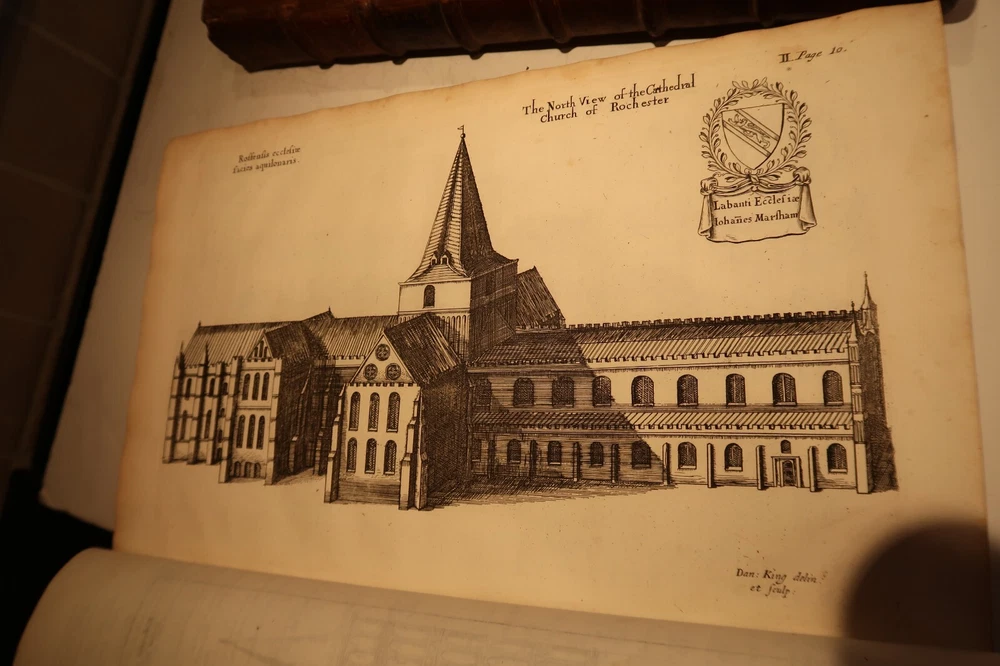 II. Page 10.
The North View of the Cathedral
Church of Rochester
Roffensis ecclesiæ
facies aquilonaris.
Labanti Ecclesiæ
Iohan̄es Marsham
Dan: King delin:
et sculp: